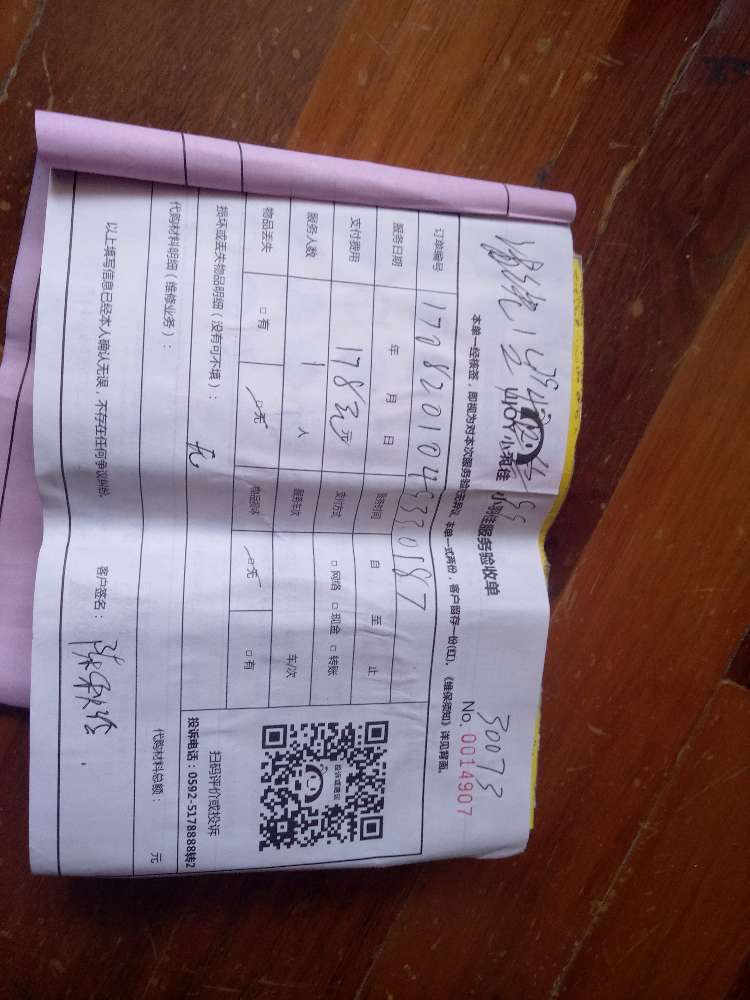 30073
UJOY小羽佳 小羽佳服务验收单
No. 0014907
本单一经核签，即视为对本次服务验收无异议，本单一式两份，客户留存一份(红)。《维保须知》详见背面。
订单编号 170820104330187
服务日期 年 月 日 服务时间 自 至 止
支付费用 178元 元 支付方式 □ 网络 □ 现金 □ 转账
服务人数 1 人 服务车次 车/次
物品丢失 □ 有 □ 无 物品损坏 □ 无 □ 有
损坏或丢失物品明细（没有可不填）： 无
扫码评价或投诉
投诉电话：0592-5178888转2
代购材料明细（维修业务）：
代购材料总额： 元
以上填写信息已经本人确认无误，不存在任何争议纠纷。 客户签名：
投诉或建议